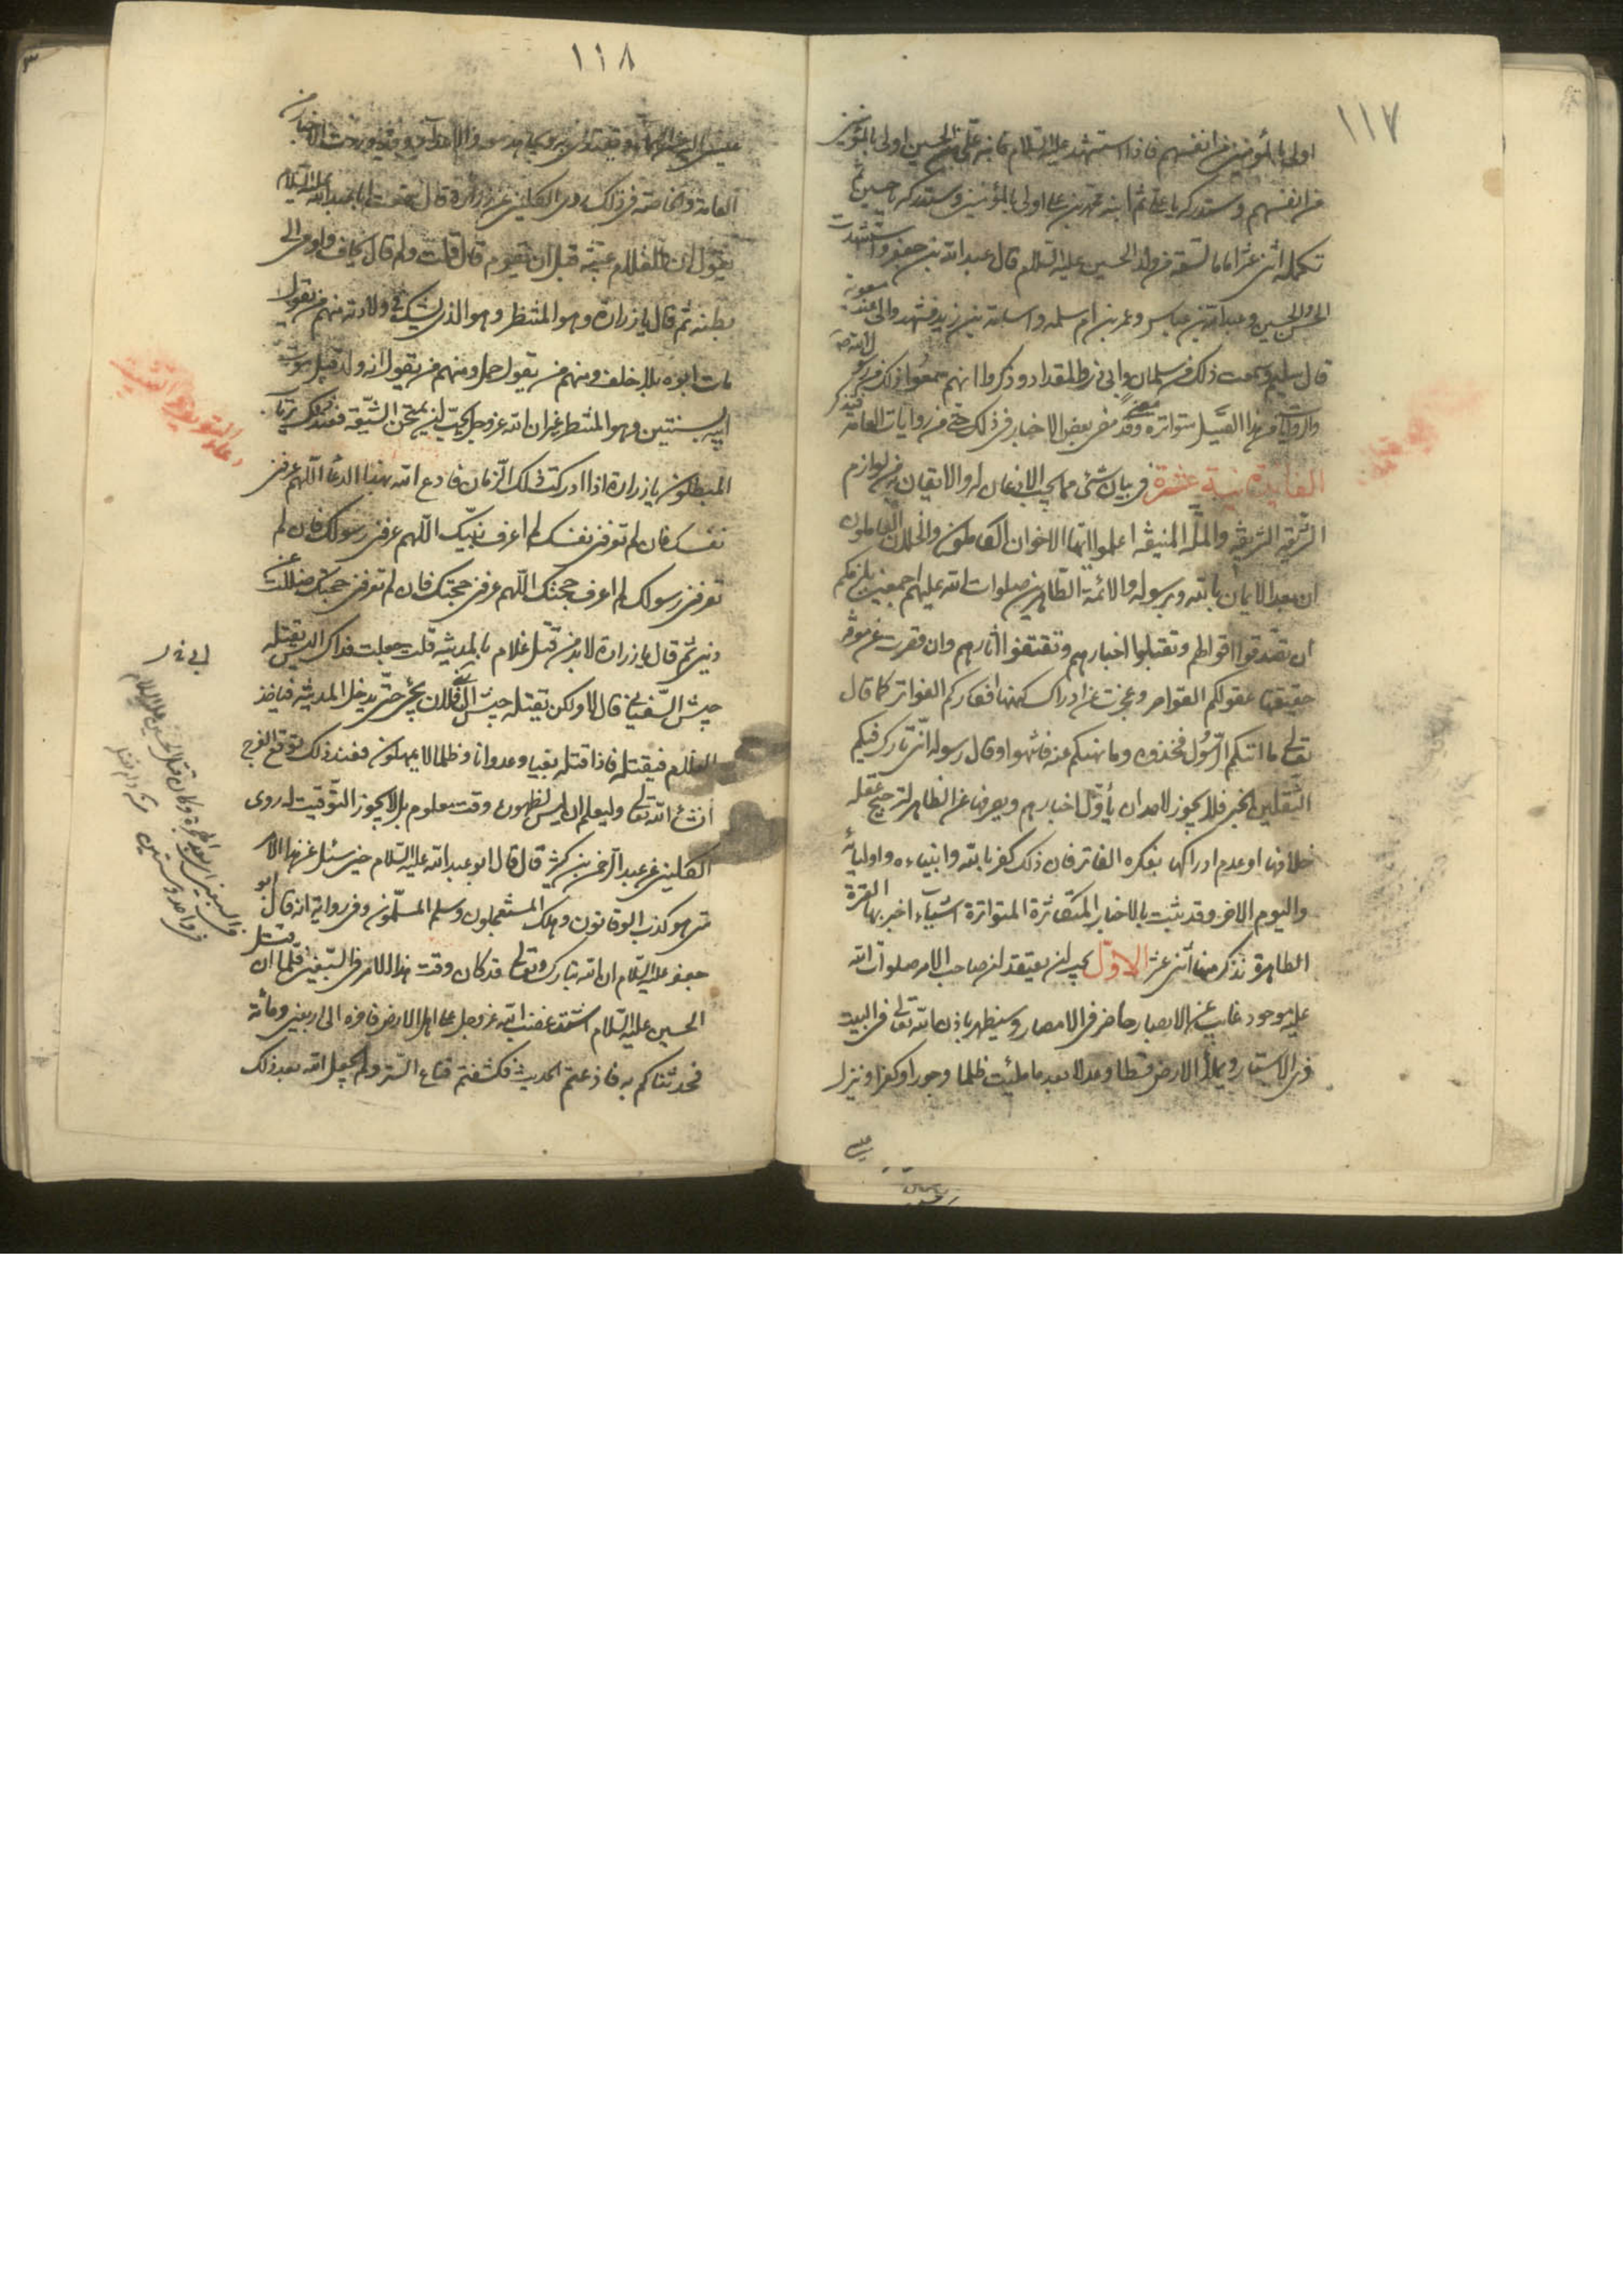 ١١٧
اولى بالمؤمنين من انفسهم فاذا استشهد عليه السلام فابنه على بن الحسين اولى بالمؤمنين
من انفسهم وستدركه يا على ثم ابنه محمد بن على اولى بالمؤمنين وستدركه يا حسين ثم
تكمله اثنى عشر اماما تسعة من ولد الحسين عليه السلام قال عبد الله بن جعفر واستشهدت
الحسن والحسين وعبد الله بن عباس وعمر بن ام سلمه واسامة بن زيد فشهدوا لى عند معوية
قال سليم وسمعت ذلك من سلمان وابى ذر والمقداد وذكروا انهم سمعوا ذلك من رسول الله ص
والروايات من هذا القبيل متواترة وقد مضى بعض الاخبار فى ذلك حتى من روايات العامه فتذكر
الفايدة ثانية عشرة فى بيان شئى مما يجب الاذعان له والايقان به من لوازم
الشريعة الشريفه والملة المنيفه اعلموا ايها الاخوان الكاملون والخلان العاملون
ان بعد الايمان بالله وبرسوله والائمة الطاهرين صلوات الله عليهم اجمعين يلزمكم
ان تصدقوا اقوالهم وتقبلوا اخبارهم وتقتفوا اثارهم وان قصرت عن معرفة
حقيقتها عقولكم القواصر وعجزت عن ادراك كنهها افكاركم الفواتر كما قال
تعالى ما اتيكم الرسول فخذوه وما نهيكم عنه فانتهوا وقال رسوله انى تارك فيكم
الثقلين الخبر فلا يجوز لاحد ان يأول اخبارهم ويصرفها عن الظاهر لترجيح عقله
خلافها او عدم ادراكها بفكره الفاتر فان ذلك كفر بالله وانبياءه واوليائه
واليوم الاخر وقد ثبت بالاخبار المتكاثرة المتواترة اشياء اخبر بها العترة
الطاهرة نذكر منها اثنى عشر الاول يجب ان يعتقد ان صاحب الامر صلوات الله
عليه موجود غايب عن الابصار حاضر فى الامصار وسيظهر باذن الله تعالى من البيت
ذى الاستار ويملأ الارض قسطا وعدلا بعد ما ملئت ظلما وجورا وكفرا وينزل
عيسى
١١٨
العامة والخاصة فى ذلك روى الكلينى عن زرارة قال سمعت ابا عبد الله عليه السلام
يقول ان للغلام غيبة قبل ان يقوم قال قلت ولم قال يخاف واومى الى
بطنه ثم قال يا زرارة وهو المنتظر وهو الذى يشك فى ولادته منهم من يقول
مات ابوه بلا خلف ومنهم من يقول حمل ومنهم من يقول انه ولد قبل موت
ابيه بسنتين وهو المنتظر غير ان الله عز وجل يحب ان يمتحن الشيعة فعند ذلك يرتاب
المبطلون يا زرارة اذا ادركت ذلك الزمان فادع الله بهذا الدعا اللهم عرفنى
نفسك فان لم تعرفنى نفسك لم اعرف نبيك اللهم عرفنى رسولك فان لم
تعرفنى رسولك لم اعرف حجتك اللهم عرفنى حجتك فان لم تعرفنى حجتك ضللت عن
دينى ثم قال يا زرارة لا بد من قتل غلام بالمدينة قلت جعلت فداك اليس يقتله
جيش السفيانى قال لا ولكن يقتله جيش آل بنى فلان يجئ حتى يدخل المدينة فياخذ
الغلام فيقتله فاذا قتله بغيا وعدوانا وظلما لا يمهلون فعند ذلك توقع الفرج
انشأ الله تعالى وليعلم ان ليس لظهوره وقت معلوم بل لا يجوز التوقيت له روى
الكلينى عن عبد الرحمن بن كثير قال قال ابو عبد الله عليه السلام حين سئل عن هذا الامر
متى هو كذب الوقاتون وهلك المستعجلون وسلم المسلمون وفى رواية انه قال ابو
جعفر عليه السلام ان الله تبارك وتعالى قد كان وقت هذا الامر فى السبعين فلما ان قتل
الحسين عليه السلام اشتد غضب الله عز وجل على اهل الارض فاخره الى اربعين ومائة
فحدثناكم به فاذعتم الحديث فكشفتم قناع الستر ولم يجعل الله بعد ذلك